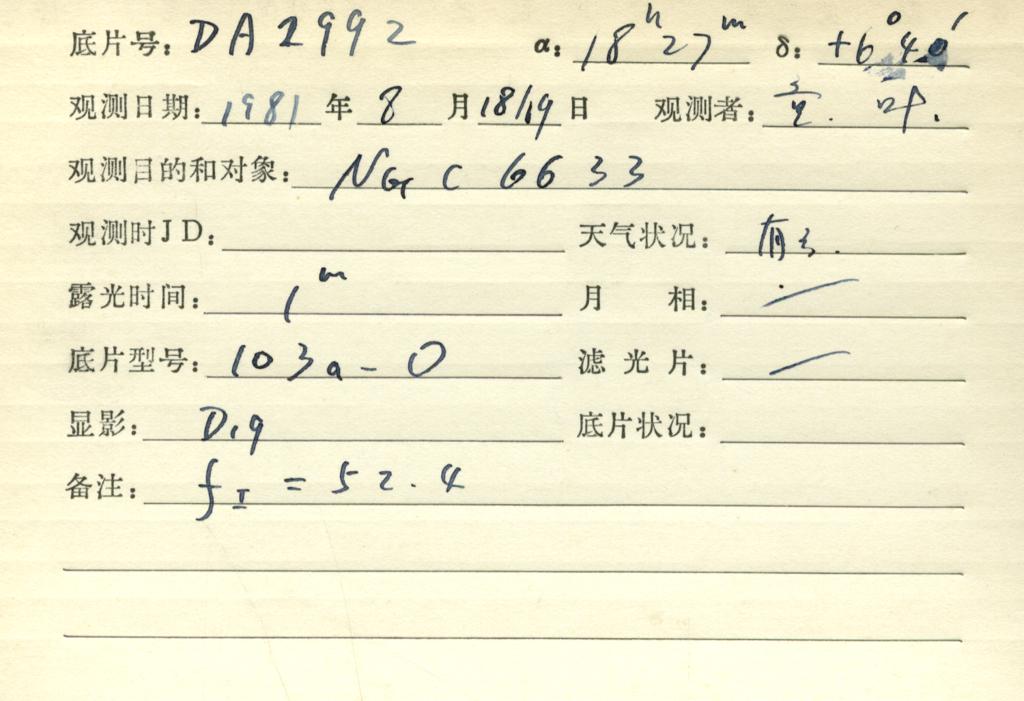 底片号: DA2992 α: 18ʰ27ᵐ δ: +6°40′
观测日期: 1981 年 8 月 18/19 日 观测者: 叶.
观测目的和对象: NGC 6633
观测时JD: 天气状况: 有云.
露光时间: 1ᵐ 月 相: —
底片型号: 103a-O 滤光片: —
显影: D19 底片状况:
备注: f_I = 52.4